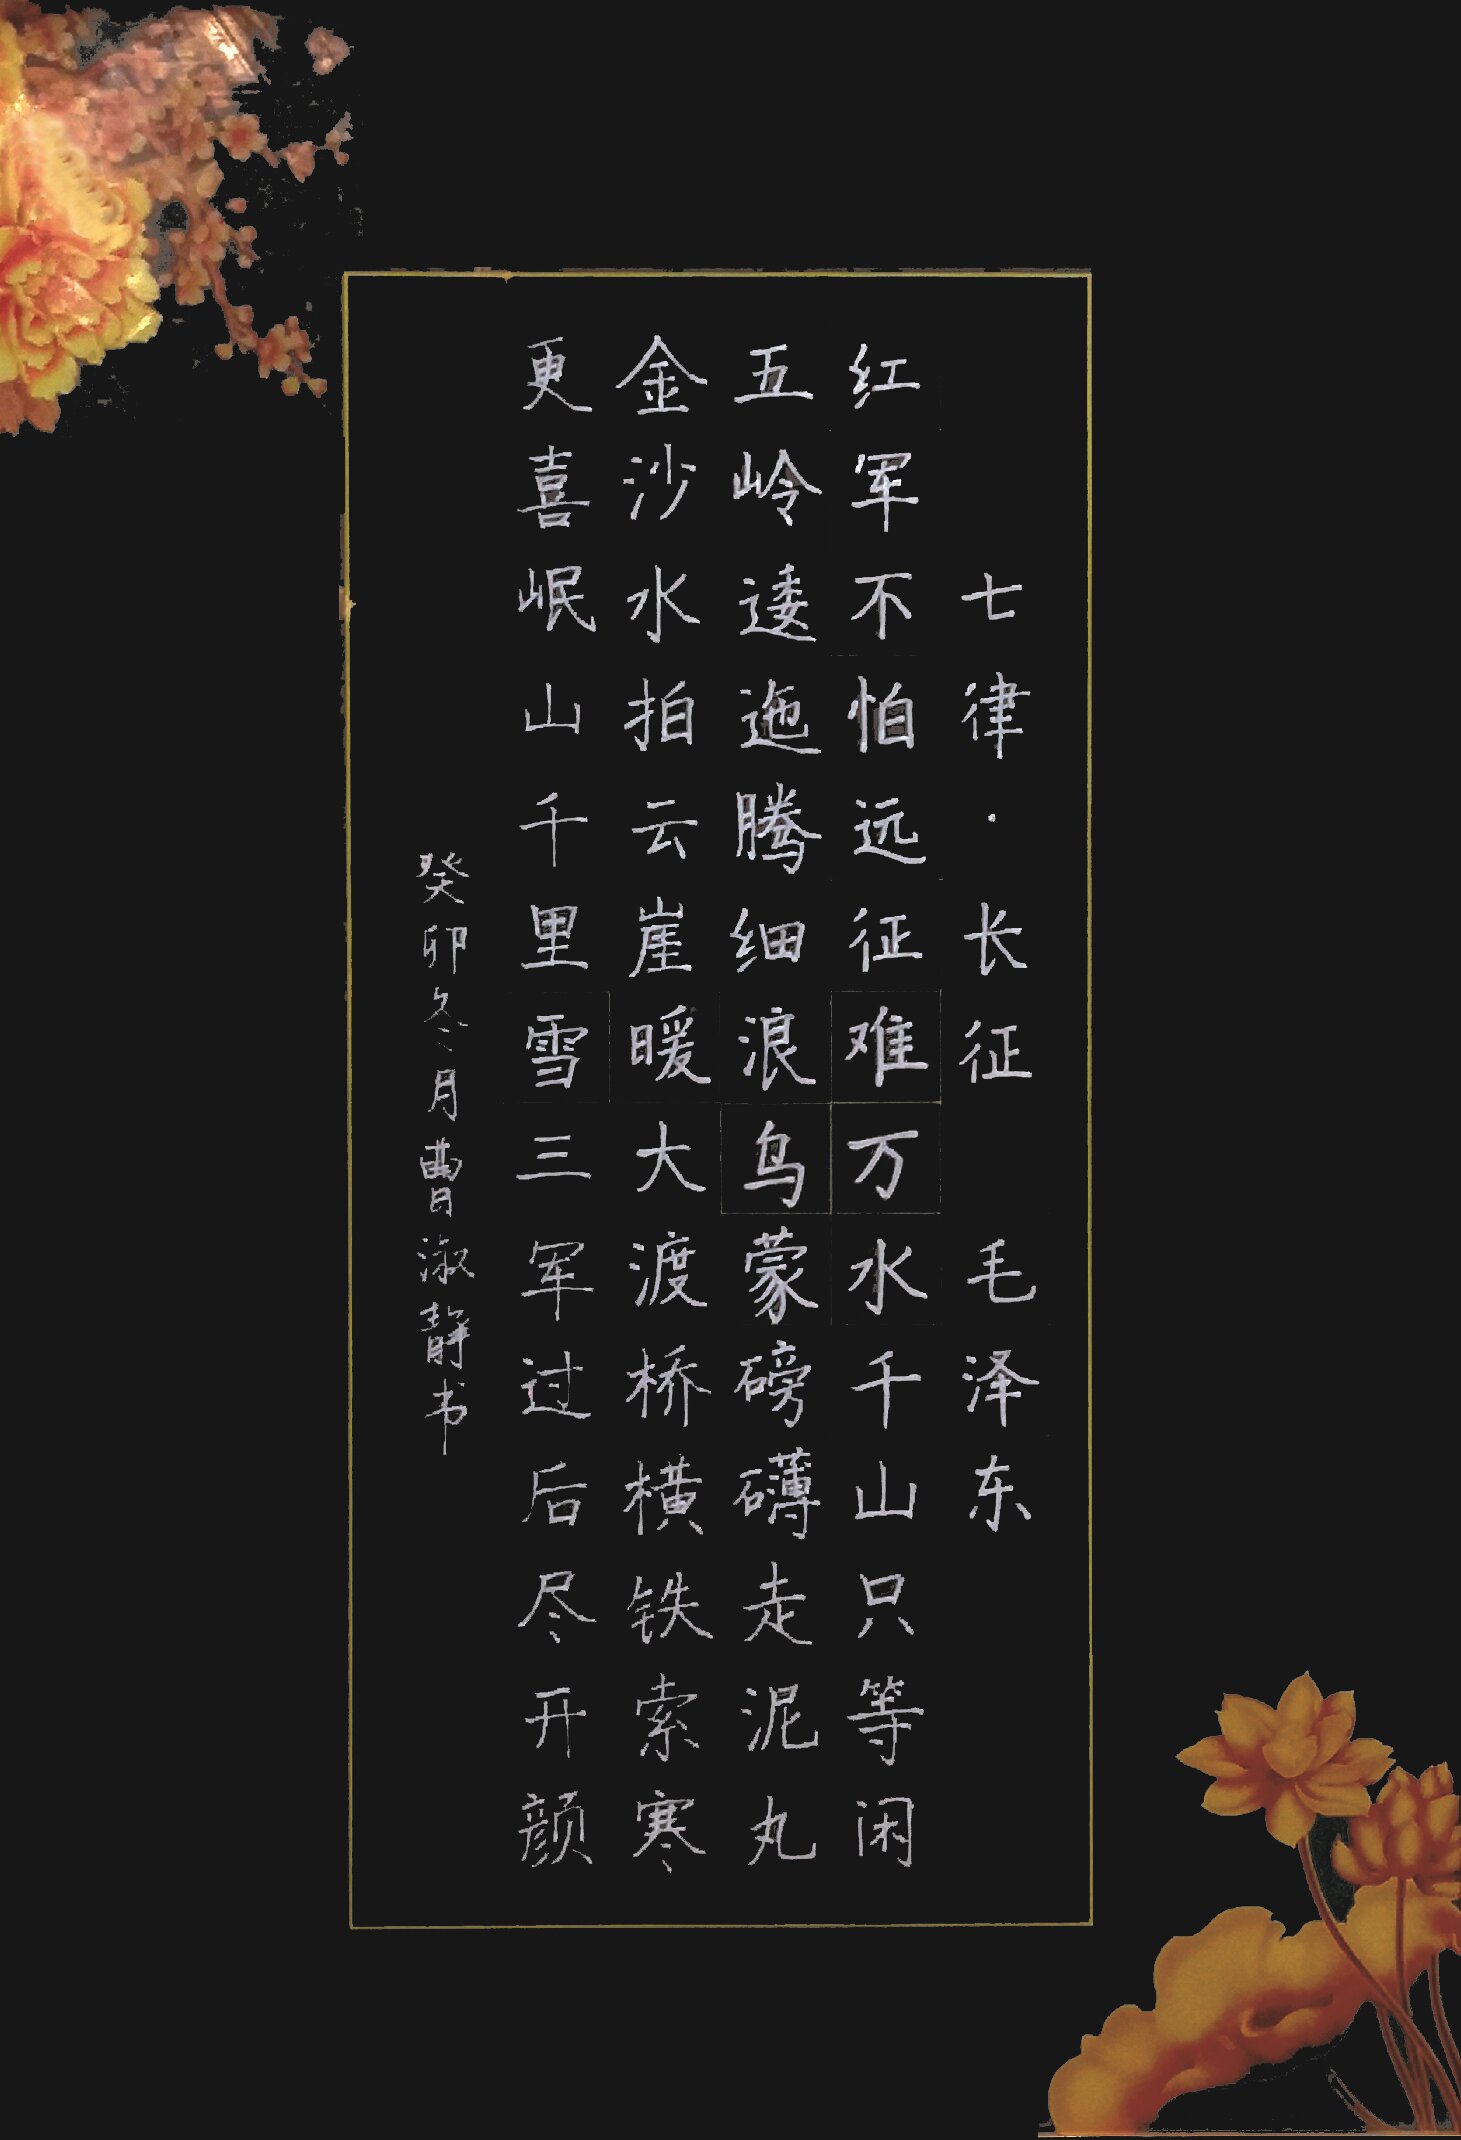 七律·长征 毛泽东
红军不怕远征难万水千山只等闲
五岭逶迤腾细浪乌蒙磅礴走泥丸
金沙水拍云崖暖大渡桥横铁索寒
更喜岷山千里雪三军过后尽开颜
癸卯冬月曹淑静书